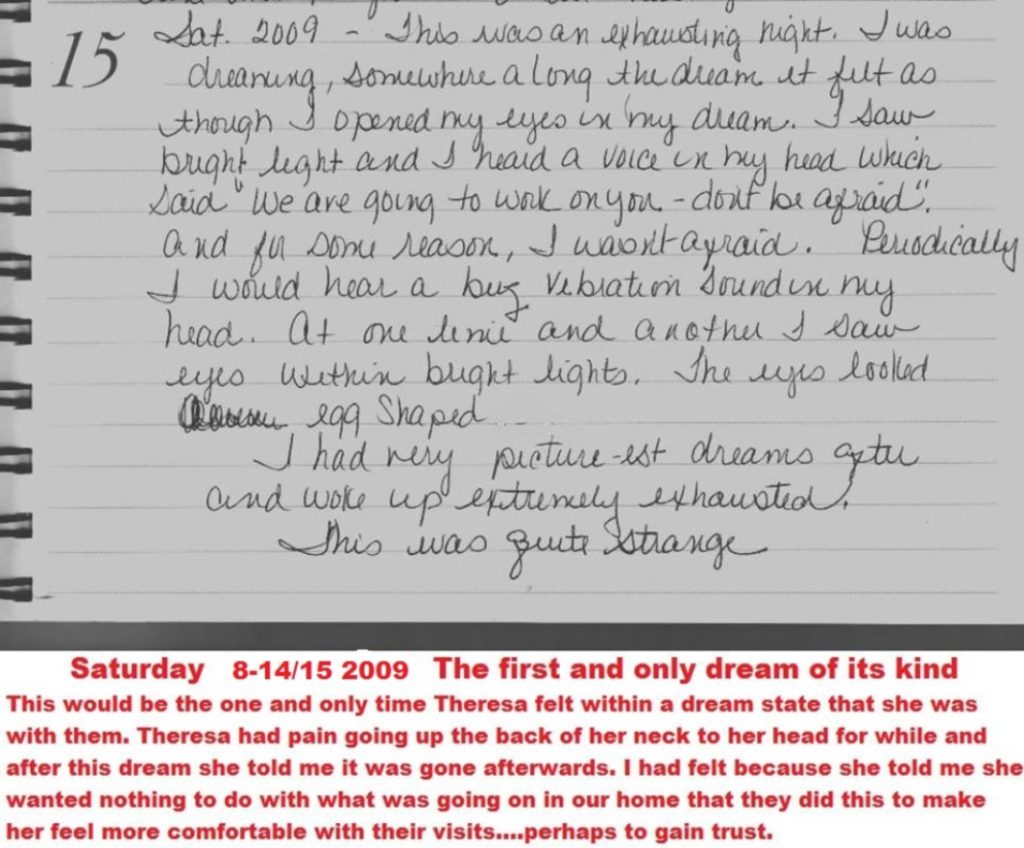 15 Sat. 2009 - This was an exhausting night. I was
dreaming, somewhere along the dream it felt as
though I opened my eyes in my dream. I saw
bright light and I heard a voice in my head which
said "We are going to work on you - don't be afraid".
And for some reason, I wasn't afraid. Periodically
I would hear a buzz vibration sound in my
head. At one time and another I saw
eyes within bright lights. The eyes looked
egg shaped
I had very picture-est dreams after
and woke up extremely exhausted.
This was quite strange
Saturday 8-14/15 2009 The first and only dream of its kind
This would be the one and only time Theresa felt within a dream state that she was
with them. Theresa had pain going up the back of her neck to her head for while and
after this dream she told me it was gone afterwards. I had felt because she told me she
wanted nothing to do with what was going on in our home that they did this to make
her feel more comfortable with their visits....perhaps to gain trust.